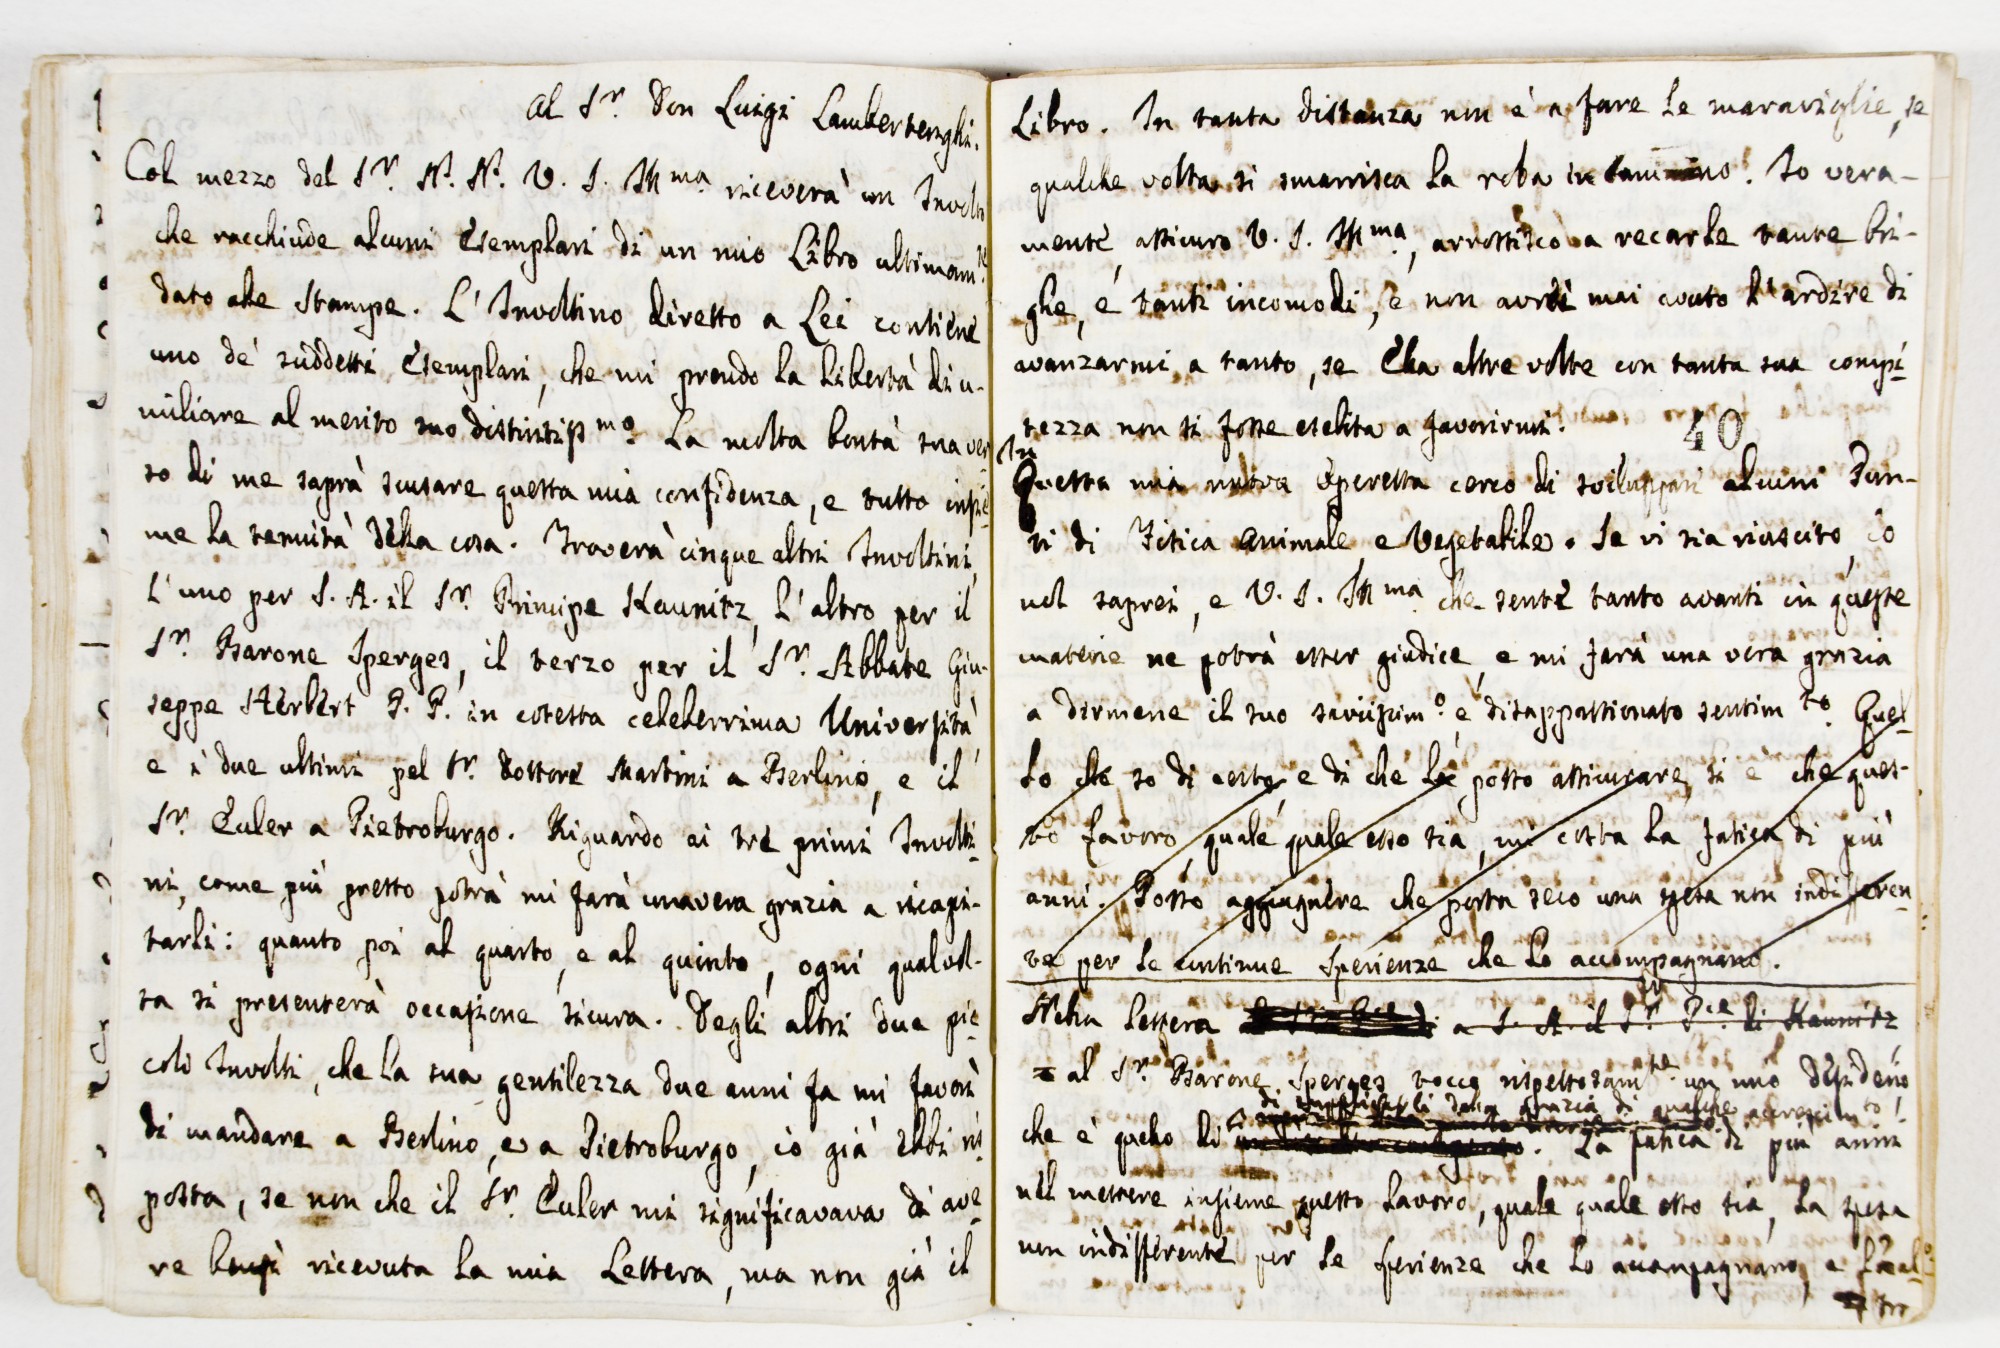 Al Sr. Don Luigi Lambertenghi.
Col mezzo del Sr. N. N. V. S. Illma. riceverà un Involto
che racchiude alcuni Esemplari di un mio Libro ultimamte.
dato alle Stampe. L' Involtino diretto a Lei contiene
uno de' suddetti Esemplari, che mi prendo la libertà di u-
miliare al merito suo distintissmo. La molta bontà sua ver-
so di me saprà scusare questa mia confidenza, e tutto insie-
me la tenuità della cosa. Troverà cinque altri Involtini
L'uno per S. A. il Sr. Principe Kaunitz, l'altro per il
Sr. Barone Sperges, il terzo per il Sr. Abbate Giu-
seppe Herbert P. P. in cotesta celeberrima Università
e i due ultimi pel Sr. Dottore Martini a Berlino, e il
Sr. Euler a Pietroburgo. Riguardo ai tre primi Involti-
ni, come più presto potrà mi farà una vera grazia a ricapi-
tarli: quanto poi al quarto, e al quinto, ogni qualvol-
ta si presenterà occasione sicura. Degli altri due pic-
coli Involti, che la sua gentilezza due anni fa mi favorì
di mandare a Berlino, e a Pietroburgo, io già ebbi ris-
posta, se non che il Sr. Euler mi significavava di ave-
re bensì ricevuta la mia Lettera, ma non già il
Libro. In tanta distanza non è a fare le maraviglie, se
qualche volta si smarrisca la roba in cammino. Io vera-
mente, assicuro V. S. Illma, arrossisco a recarle tante bri-
ghe, e tanti incomodi, e non avrei mai avuto l'ardire di
avanzarmi a tanto, se Ella altre volte con tanta sua compi-
tezza non si fosse esebita a favorirmi.
40
In
Questa mia nuova Operetta cerco di sviluppari alcuni Pun-
ti di Fisica Animale e Vegetabile. Se vi sia riuscito, io
nol saprei, e V. S. Illma che sente tanto avanti in queste
materie ne potrà esser giudice, e mi farà una vera grazia
a dirmene il suo savissimo. e disappassionato sentimto. Quel
lo che so di certo, e di che Le posso assicurare, si è che ques-
to favoro, quale quale esso sia, mi costa la fatica di più
anni. Posso aggiugnere che porta seco una spesa non indifferen
te per le continue Sperienze che lo accompagnano.
Nella Lettera a S. A. il Sr. Pce. di Kaunitz
al Sr. Barone Sperges tocco rispettosamte. un mio desiderio
di supplicarli della grazia di qualche accrescimto!
che è quello di. La fatica di più anni
nel mettere insieme questo Lavoro, quale quale esso sia, la spesa
non indifferente per le sperienze che lo accompagnano, e